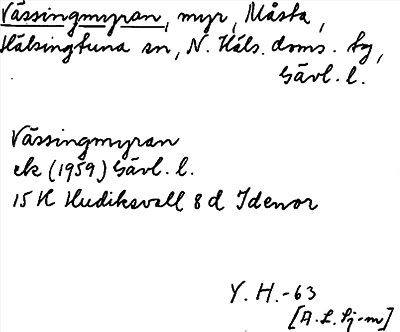 Vässingmyran, myr, Måsta,
Hälsingtuna sn, N. Häls. doms. tg,
Gävl. l.
Vässingmyran
ek (1959) Gävl. l.
15 H Hudiksvall 8 d Idenor
Y. H.-63
[A. L. Sj-m]